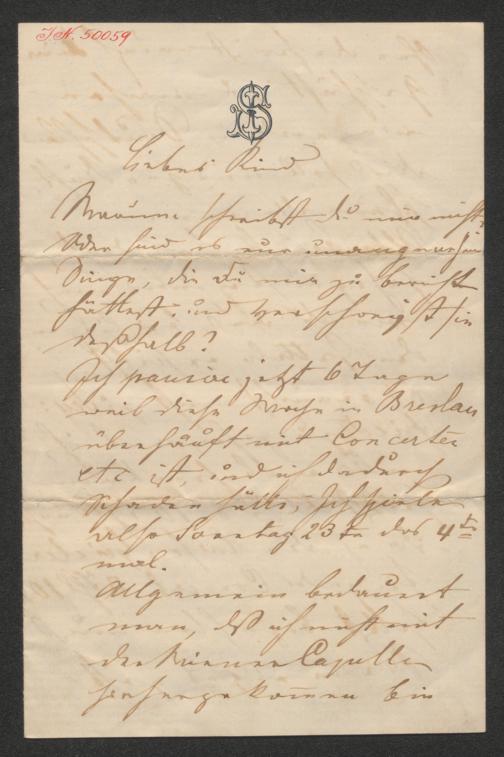 J.N. 50059
JS
Liebes Kind
Warum schreibst du mir nicht,
oder sind es nur unangenehme
Dinge, die du mir zu berichten
hättest, und verschweigst sie
deßhalb?
Ich pausire jetzt 6 Tage
weil diese Woche in Breslau
überhäuft mit Concerten
etc ist, und ich dadurch
Schaden hätte, Ich spiele
also Sonntag 23ten das 4te
mal.
Allgemein bedauert
man, daß ich nicht mit
der Wiener Capelle
hergekommen bin